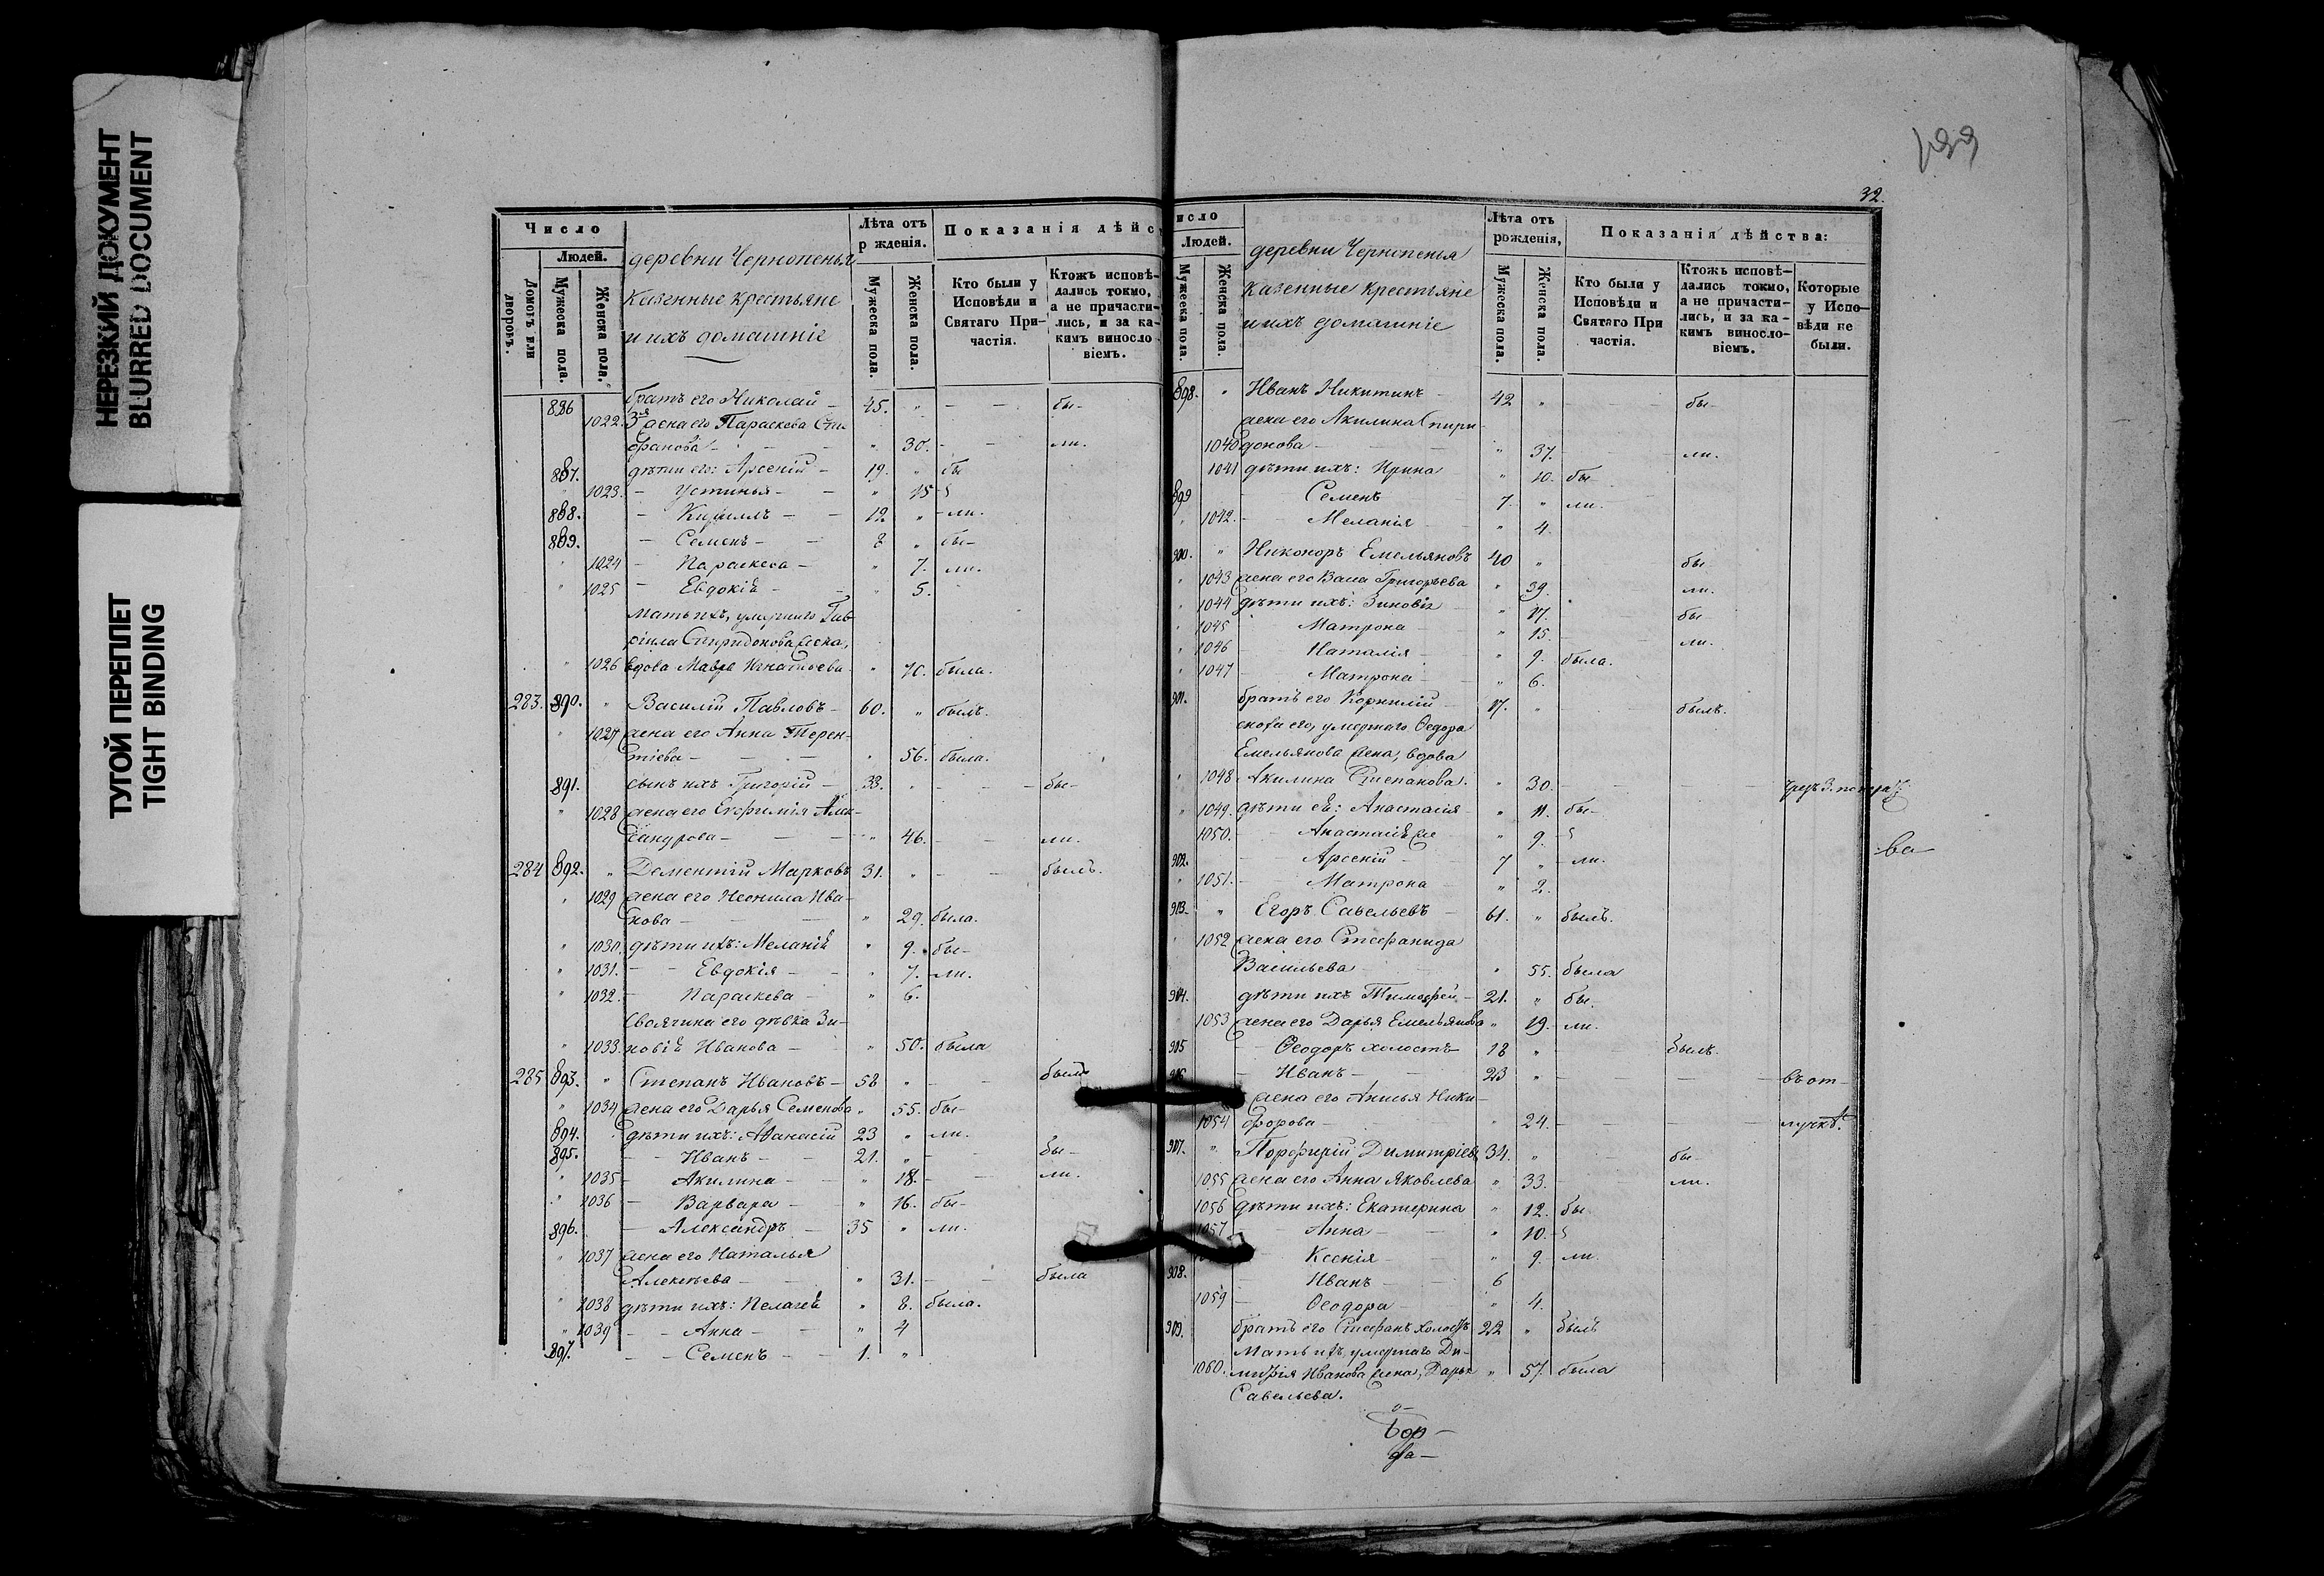 НЕРЕЗКИЙ ДОКУМЕНТ
BLURRED DOCUMENT
ТУГОЙ ПЕРЕПЛЕТ
TIGHT BINDING
Число
Людей.
Домогъ или дворовъ.
Мужеска пола.
Женска пола.
деревни Чернопенья
казенные крестьяне
и ихъ домашніе
Лѣта отъ
р жденія.
Мужеска пола.
Женска пола.
Показанія дѣйст
Кто были у
Исповѣди и
Святаго При-
частія.
Ктожъ исповѣ-
дались токмо,
а не причасти-
лись, и за ка-
кимъ винословіемъ.
886 братъ его Николай - 45. " - - бы-
1022. 3я жена его Параскева Сте-
фанова - " 30. - - ли.
887. дѣти его: Арсеній - 19. " бы
" 1023. - Устинья - " 15
888. - Кириллъ - 12 " - ли.
889. - Семенъ - 8 " бы-
" 1024 - Параскева - " 7. ли.
" 1025 - Евдокія - " 5.
мать ихъ, умершаго Гав-
ріила Спиридонова жена,
" 1026 вдова Мавра Игнатьева " 70. была.
283. 890. " Василій Павловъ - 60. " былъ.
" 1027 жена его Анна Терен-
тіева - " 56. была.
891. сынъ ихъ Григорій - 33. " - - бы-
" 1028 жена его Евфимія Алек-
сандрова - " 46. - ли.
284 892. " Дементій Марковъ 31. " - - былъ.
" 1029 жена его Неонила Ива-
нова - " 29. была.
" 1030. дѣти ихъ: Меланія " 9. бы-
" 1031. - - Евдокія - " 7. ли.
" 1032. - Параскева - " 6.
Своячина его дѣвка Зи-
" 1033. новія Иванова - " 50. была
285 893. " Степанъ Ивановъ - 58 " - - былъ
" 1034 жена его Дарья Семенова " 55. бы-
894. дѣти ихъ: Аѳанасій 23 " ли.
895. - - Иванъ - 21. " - бы-
" 1035 - Акилина - " 18. - ли.
" 1036 - Варвара - " 16. бы-
896. - Александръ - 35 " ли.
" 1037 жена его Наталья
Алексѣева - " 31. - - была
" 1038 дѣти ихъ: Пелагея " 8. была.
" 1039 - - Анна - " 4
897. - - Семенъ - 1. "
199
32.
исло
Людей.
Мужеска пола.
Женска пола.
деревни Чернопенья
казенные крестьяне
и ихъ домашніе
Лѣта отъ
рожденія,
Мужеска пола.
Женска пола.
Показанія дѣйства:
Кто были у
Исповѣди и
Святаго При
частія.
Ктожъ исповѣ-
дались токмо,
а не причасти-
лись, и за ка-
кимъ винословіемъ.
Которые
у Испо-
вѣди не
были.
898. " Иванъ Никитинъ - 42 " бы-
жена его Акилина Спири-
1040 донова - " 37. ли.
1041 дѣти ихъ: Ирина " 10. бы-
899 Семенъ 7. " ли.
" 1042. Меланія " 4.
900. " Никоноръ Емельяновъ 40 " бы
" 1043 жена его Васса Григорьева " 39. ли.
" 1044 дѣти ихъ: Зиновія " 17. бы-
" 1045 Матрона " 15. ли.
" 1046 Наталія " 9. была.
" 1047 Матрона " 6.
901. братъ его Корнилій 17. " былъ.
сноха его, умершаго Ѳедора
Емельянова жена, вдова
" 1048. Акилина Степанова. " 30.
" 1049. дѣти ея: Анастасія " 11. бы-
1050. Анастасія же " 9.
902. Арсеній 7 " ли.
" 1051. Матрона " 2.
903. " Егоръ Савельевъ 61. " былъ.
1052 жена его Стефанида
Васильева " 55. была
904. дѣти ихъ Тимоѳей 21. " бы.
1053 жена его Дарья Емельянова " 19. ли.
905 Ѳеодоръ холостъ 18 " былъ.
Иванъ - 23 " въ от-
жена его Анисья Ники-
1054 форова " 24. лучкѣ.
907. " Порфирій Димитріевъ 34. " бы-
1055 жена его Анна Яковлева " 33. ли.
1056 дѣти ихъ: Екатерина " 12. бы
1057 Анна " 10.
Ксенія " 9. ли.
908. Иванъ 6
1059 Ѳеодора " 4.
909. братъ его Стефанъ холостъ 22 " былъ
Мать ихъ, умершаго Ди-
1060. митрія Иванова жена, Дарья " 57. была
Савельева.
ва-